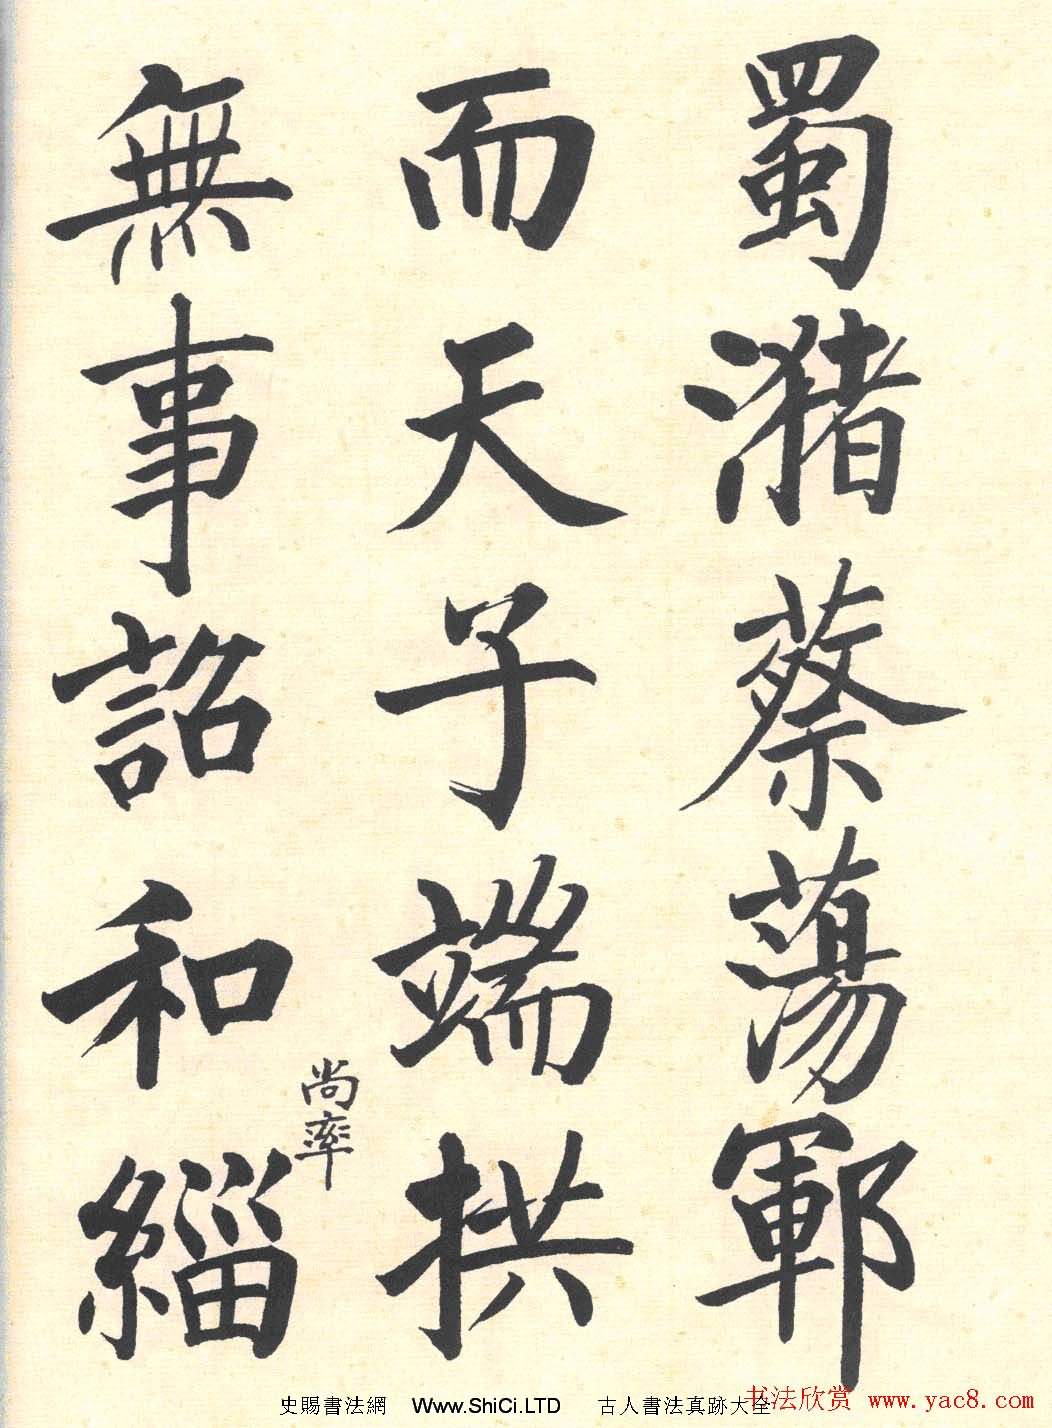 蜀瀦蔡蕩鄆
而天子端拱
無事詔和緇
尚率
史賜書法網 Www.ShiCi.LTD 古人書法真跡大全
书法欣赏 www.yac8.com